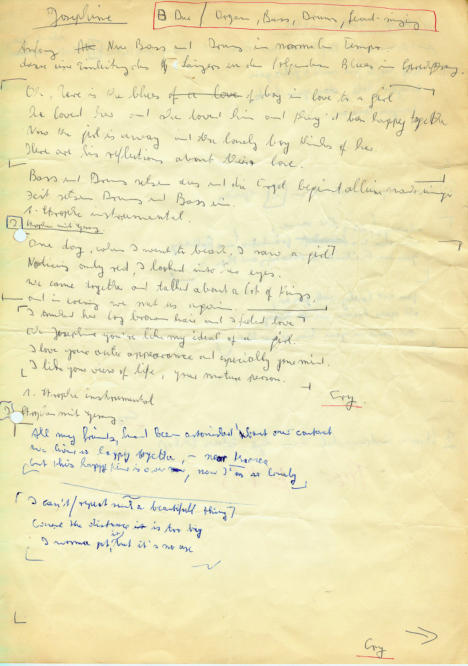 Josephine
B Dur / Organ, Bass, Drums, Lead-singing
Anfang Nur Bass und Drums in normalem Tempo
dann eine Einleitung des Sängers in den folgenden Blues in
Oh, here is the blues of a love of boy in love to a girl
He loved her and she loved him and they'd been happy together
Now the girl is away and the lonely boy thinks of her
Here are his reflections about their love.
Bass und Drums setzen aus und die Orgel beginnt allein
setzen Drums und Bass ein.
1. Strophe instrumental.
2 Strophen mit Gesang
One day, when I went to beach, I saw a girl
Noticing only red, I looked into her eyes.
We came together and talked about a lot of things.
and in evening we met us again.
I touched her long brown hair and I feeled love
Oh Josephine you're like my ideal of a girl.
I love your outer appearance and especially your mind.
I like your view of life, your mature person.
1. Strophe instrumental
Cry
2 Strophen mit Gesang.
All my friends, had been astonished about our contact
We lived so happy together,
but this happy time is over, now I'm so lonely
I can't repeat such a beautiful thing
Cause the distance is too big
I wanna but it's no use
Cry